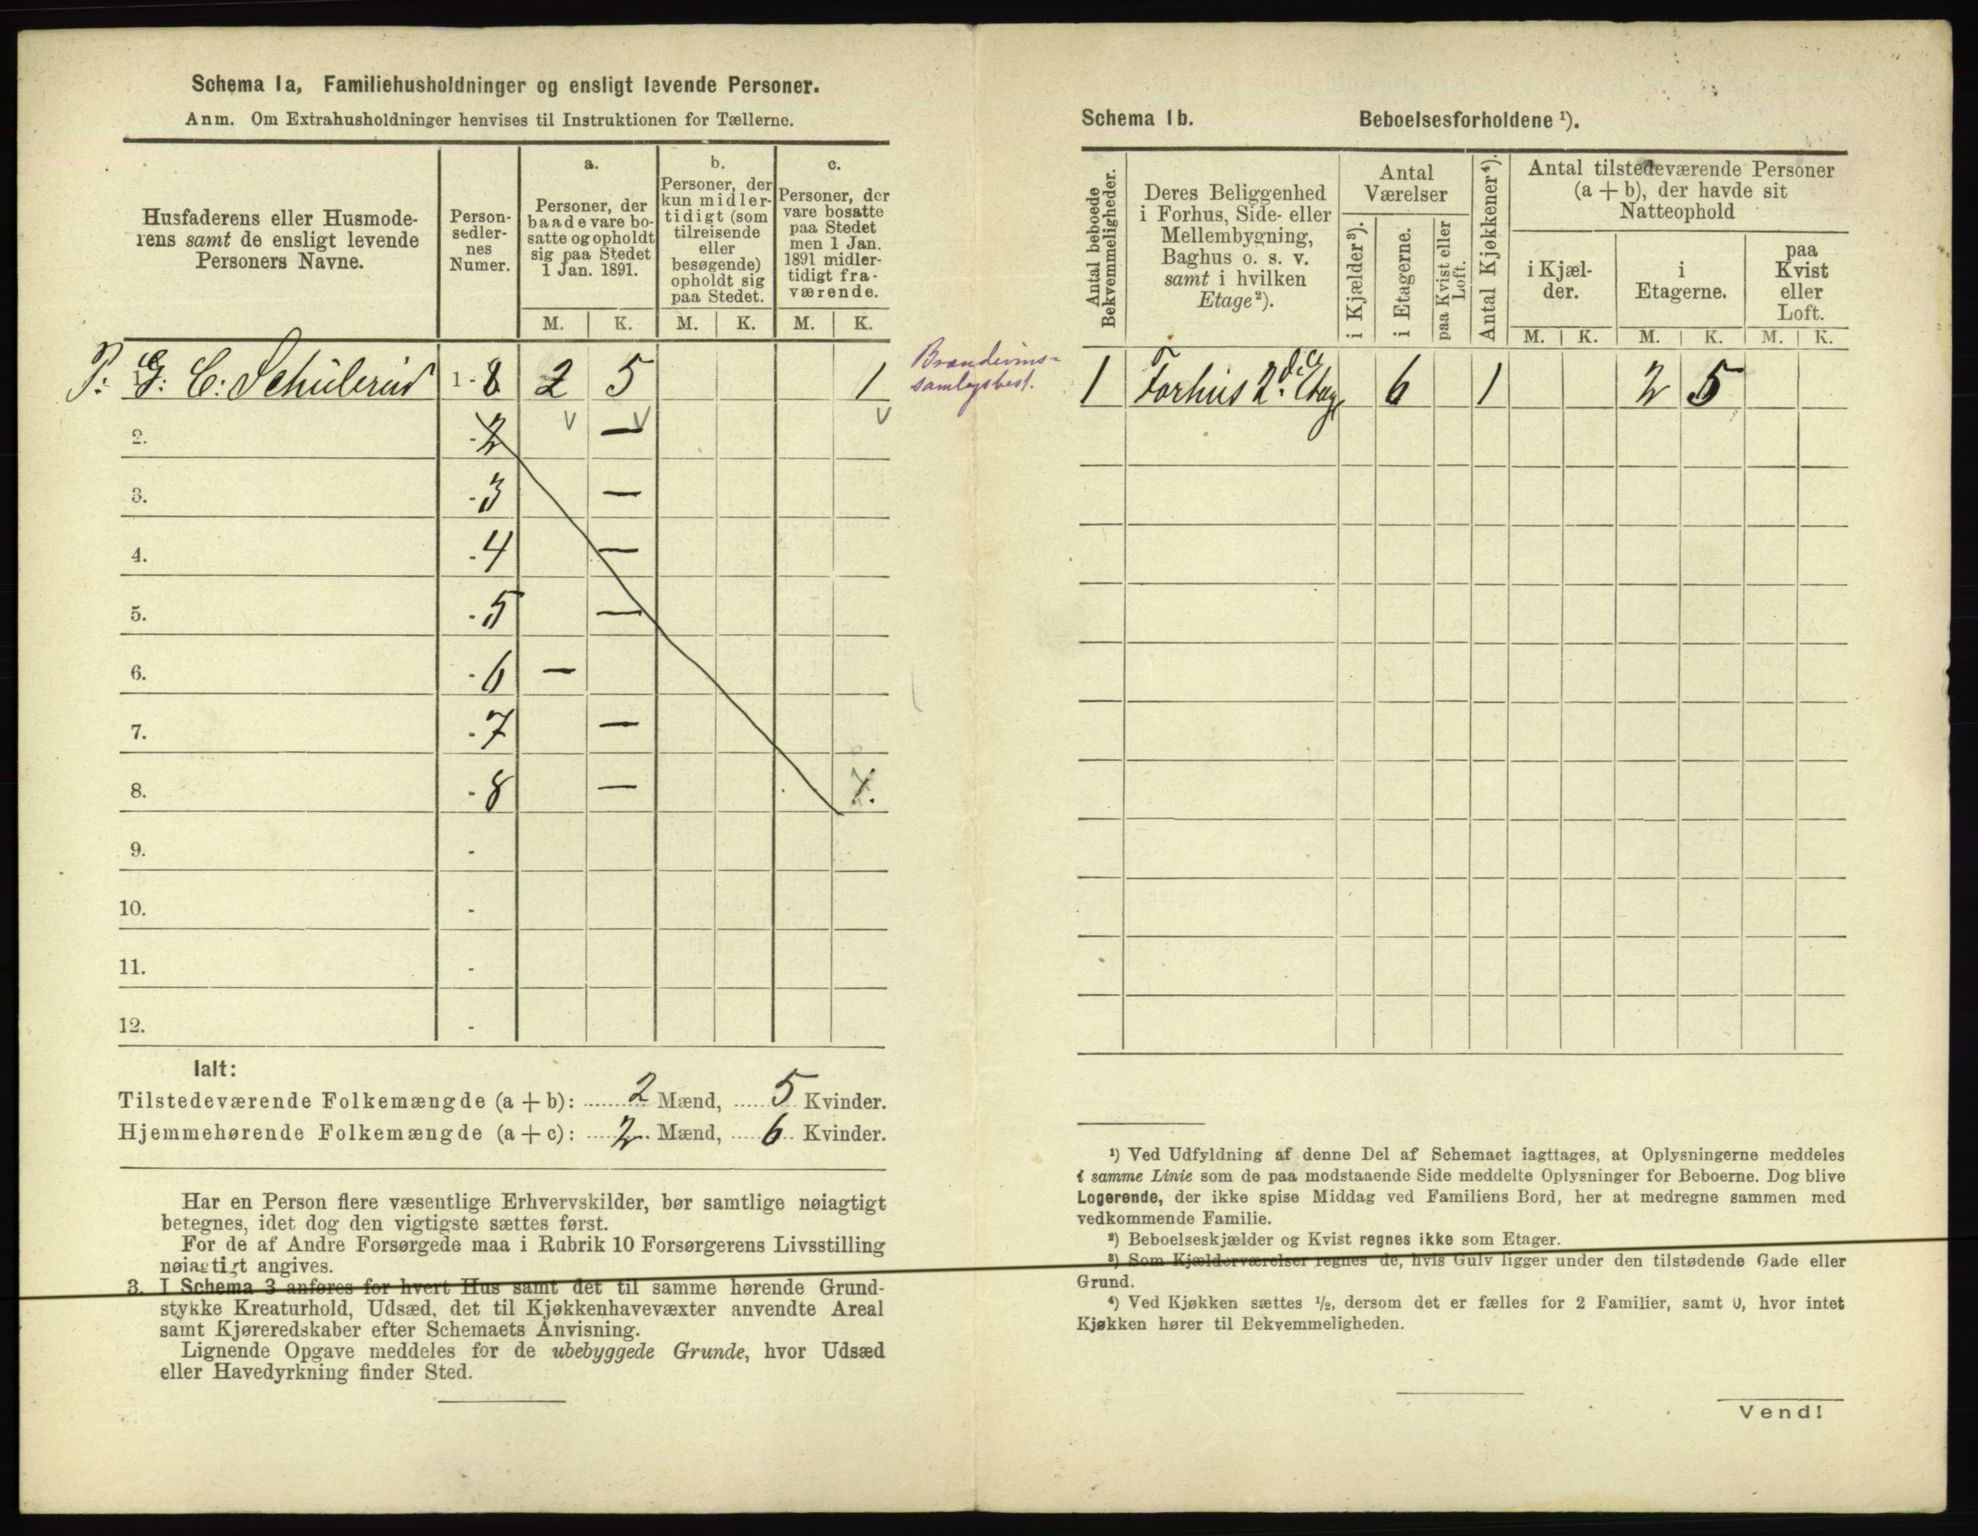 Schema 1a, Familiehusholdninger og ensligt levende Personer.
Anm. Om Extrahusholdninger henvises til Instruktionen for Tællerne.
Husfaderens eller Husmode-
rens samt de ensligt levende
Personers Navne.
Person-
sedler-
nes
Numer.
a.
Personer, der
baade vare bo-
satte og opholdt
sig paa Stedet
1 Jan. 1891.
b.
Personer, der
kun midler-
tidigt (som
tilreisende
eller
besøgende)
opholdt sig
paa Stedet.
c.
Personer, der
vare bosatte
paa Stedet
men 1 Jan.
1891 midler-
tidigt fra-
værende.
M. K. M. K. M. K.
P: G: C: Schülerud 1 - 8 2 5 1
Brændevins-
samlagsbest.
2. - 2 —
3. - 3 —
4. - 4 —
5. - 5 —
6. - 6 —
7. - 7 —
8. - 8 —
9. -
10. -
11. -
12. -
Ialt:
Tilstedeværende Folkemængde (a + b): 2 Mænd, 5 Kvinder.
Hjemmehørende Folkemængde (a + c): 2 Mænd, 6 Kvinder.
Har en Person flere væsentlige Erhvervskilder, bør samtlige nøiagtigt
betegnes, idet dog den vigtigste sættes først.
For de af Andre Forsørgede maa i Rubrik 10 Forsørgerens Livsstilling
nøiagtigt angives.
3. I Schema 3 anføres for hvert Hus samt det til samme hørende Grund-
stykke Kreaturhold, Udsæd, det til Kjøkkenhavevæxter anvendte Areal
samt Kjøreredskaber efter Schemaets Anvisning.
Lignende Opgave meddeles for de ubebyggede Grunde, hvor Udsæd
eller Havedyrkning finder Sted.
Schema 1b. Beboelsesforholdene ¹).
Antal beboede
Bekvemmeligheder.
Deres Beliggenhed
i Forhus, Side- eller
Mellembygning,
Baghus o. s. v.
samt i hvilken
Etage²).
Antal
Værelser
i Kjælder³).
i Etagerne.
paa Kvist eller
Loft.
Antal Kjøkkener⁴).
Antal tilstedeværende Personer
(a + b), der havde sit
Natteophold
i Kjæl-
der.
i
Etagerne.
paa
Kvist
eller
Loft.
M. K. M. K. M. K.
1 Forhus 2den Etage 6 1 2 5
¹) Ved Udfyldning af denne Del af Schemaet iagttages, at Oplysningerne meddeles
i samme Linie som de paa modstaaende Side meddelte Oplysninger for Beboerne. Dog blive
Logerende, der ikke spise Middag ved Familiens Bord, her at medregne sammen med
vedkommende Familie.
²) Beboelseskjælder og Kvist regnes ikke som Etager.
³) Som Kjælderværelser regnes de, hvis Gulv ligger under den tilstødende Gade eller
Grund.
⁴) Ved Kjøkken sættes ½, dersom det er fælles for 2 Familier, samt 0, hvor intet
Kjøkken hører til Bekvemmeligheden.
Vend!